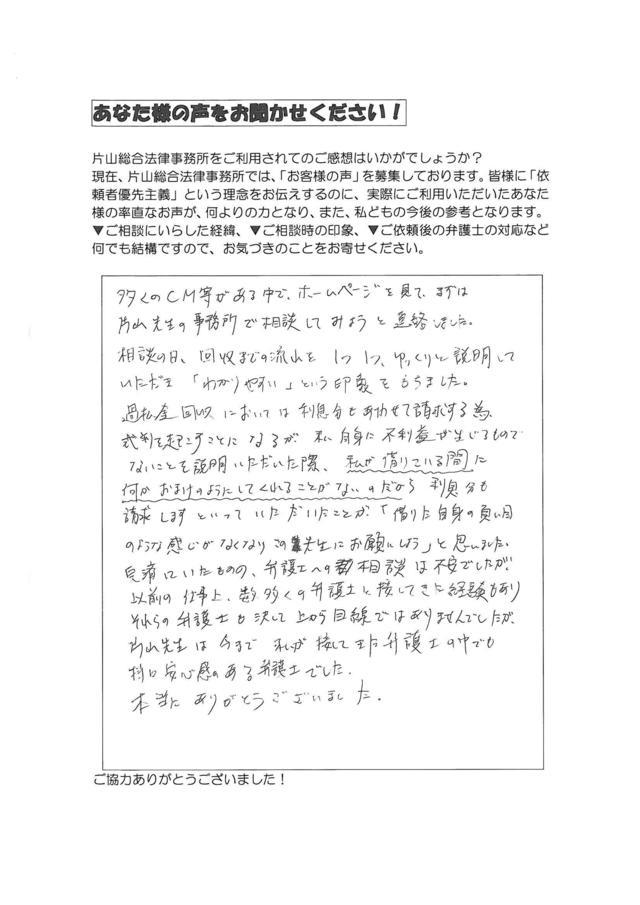 あなた様の声をお聞かせください！
片山総合法律事務所をご利用されてのご感想はいかがでしょうか？
現在、片山総合法律事務所では、「お客様の声」を募集しております。皆様に「依
頼者優先主義」という理念をお伝えするのに、実際にご利用いただいたあなた
様の率直なお声が、何よりの力となり、また、私どもの今後の参考となります。
▼ご相談にいらした経緯、▼ご相談時の印象、▼ご依頼後の弁護士の対応など
何でも結構ですので、お気づきのことをお寄せください。
多くのCM等がある中で、ホームページを見て、まずは
片山先生の事務所で相談してみようと連絡しました。
相談の日、回収までの流れを1つ1つ、ゆっくりと説明して
いただき「わかりやすい」という印象をもちました。
過払金回収においては利息分もあわせて請求する為、
裁判を起こすことになるが、私自身に不利益が生じるもので
ないことを説明いただいた際、私が借りている間に
何かおまけのようにしてくれることがないのだから利息分も
請求しますといっていただいたことが「借りた自身の負い目
のような感じがなくなりこの先生にお願いしよう」と思いました。
完済していたものの、弁護士への相談は不安でしたが、
以前の仕事上、数多くの弁護士と接してきた経験もあり
それらの弁護士も決して上から目線ではありませんでしたが、
片山先生は今まで私が接してきた弁護士の中でも
安心感のある弁護士でした。
本当にありがとうございました。
ご協力ありがとうございました！